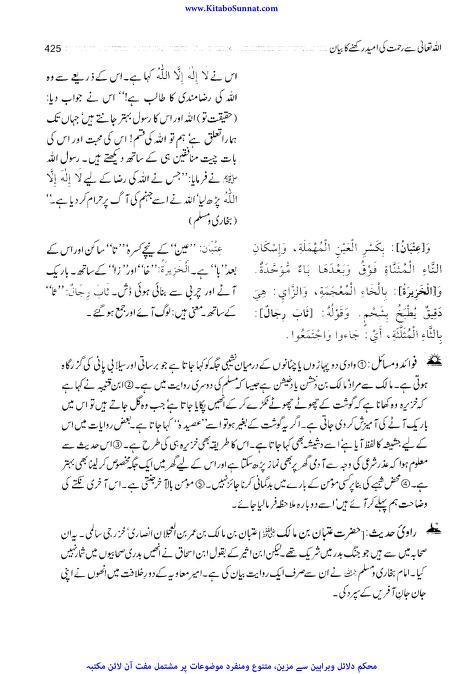 www.KitaboSunnat.com
425 اللہ تعالیٰ سے رحمت کی امید رکھنے کا بیان
اس نے لَا إِلٰهَ إِلَّا اللّٰهُ کہا ہے۔ اس کے ذریعے سے وہ
اللہ کی رضامندی کا طالب ہے!“ اس نے جواب دیا:
(حقیقت تو) اللہ اور اس کا رسول بہتر جانتے ہیں‘ جہاں تک
ہمارا تعلق ہے‘ ہم تو اللہ کی قسم! اس کی محبت اور اس کی
بات چیت منافقین ہی کے ساتھ دیکھتے ہیں۔ رسول اللہ
ﷺ نے فرمایا: ”جس نے اللہ کی رضا کے لیے لَا إِلٰهَ إِلَّا
اللّٰهُ پڑھ لیا‘ اللہ نے اسے جہنم کی آگ پر حرام کر دیا ہے۔“
(بخاری و مسلم)
وَ[عِتْبَانُ]: بِكَسْرِ الْعَيْنِ الْمُهْمَلَةِ، وَإِسْكَانِ
التَّاءِ الْمُثَنَّاةِ فَوْقُ وَبَعْدَهَا بَاءٌ مُوَحَّدَةٌ.
وَ[الْخَزِيرَةُ]: بِالْخَاءِ الْمُعْجَمَةِ، وَالزَّايِ: هِيَ
دَقِيقٌ يُطْبَخُ بِشَحْمٍ. وَقَوْلُهُ: [ثَابَ رِجَالٌ]:
بِالثَّاءِ الْمُثَلَّثَةِ، أَيْ: جَاءوا وَاجْتَمَعُوا.
عِتْبَان: ”عین“ کے نیچے کسرہ‘ ”تا“ ساکن اور اس کے
بعد ”با“ ہے۔ الْخَزِيرَة: ”خا“ اور ”زا“ کے ساتھ۔ باریک
آٹے اور چربی سے بنائی ہوئی ڈش۔ ثَابَ رِجَالٌ: ”ثا“
کے ساتھ۔ معنی ہیں: لوگ آئے اور جمع ہو گئے۔
فوائد و مسائل: ① وادی دو پہاڑوں یا چٹانوں کے درمیان نشیبی جگہ کو کہا جاتا ہے جو برساتی اور سیلابی پانی کی گزرگاہ
ہوتی ہے۔ مالک سے مراد مالک بن دخشن یا دخیشن ہے جیسا کہ مسلم کی دوسری روایت میں ہے۔ ② ابن قتیبہ نے کہا ہے
کہ خزیرہ وہ کھانا ہے کہ گوشت کے چھوٹے چھوٹے ٹکڑے کر کے انھیں پکایا جاتا ہے‘ جب وہ گل جاتے ہیں تو اس میں
باریک آٹے کی آمیزش کر دی جاتی ہے۔ اگر یہ گوشت کے بغیر ہو تو اسے ”عصیدہ“ کہا جاتا ہے۔ بعض روایات میں اس
کے لیے جشیشہ کا لفظ آیا ہے‘ اسے دشیشہ بھی کہا جاتا ہے۔ اس کا طریقہ بھی خزیرہ ہی کی طرح ہے۔ ③ اس حدیث سے
معلوم ہوا کہ عذر شرعی کی وجہ سے آدمی گھر پر بھی نماز پڑھ سکتا ہے اور اس کے لیے گھر میں ایک جگہ مخصوص کر لینا بھی بہتر
ہے۔ ④ محض شبہے کی بنا پر کسی مومن کے بارے میں بدگمانی کرنا جائز نہیں۔ ⑤ مومن بالآخر جنتی ہے۔ اس آخری نکتے کی
وضاحت ہم پہلے کر آئے ہیں‘ اسے دوبارہ ملاحظہ فرما لیا جائے۔
راویٔ حدیث: [حضرت عتبان بن مالک ؓ] عتبان بن مالک بن عمر بن العجلان انصاری‘ خزرجی سالمی۔ یہ ان
صحابہ میں سے ہیں جو جنگ بدر میں شریک تھے۔ لیکن ابن اثیر کے بقول ابن اسحاق نے انھیں بدری صحابیوں میں شمار نہیں
کیا۔ امام بخاری و مسلم نے ان سے صرف ایک روایت بیان کی ہے۔ امیر معاویہ کے دور خلافت میں انھوں نے اپنی
جان جان آفریں کے سپرد کی۔
محکم دلائل وبراہین سے مزین، متنوع ومنفرد موضوعات پر مشتمل مفت آن لائن مکتبہ